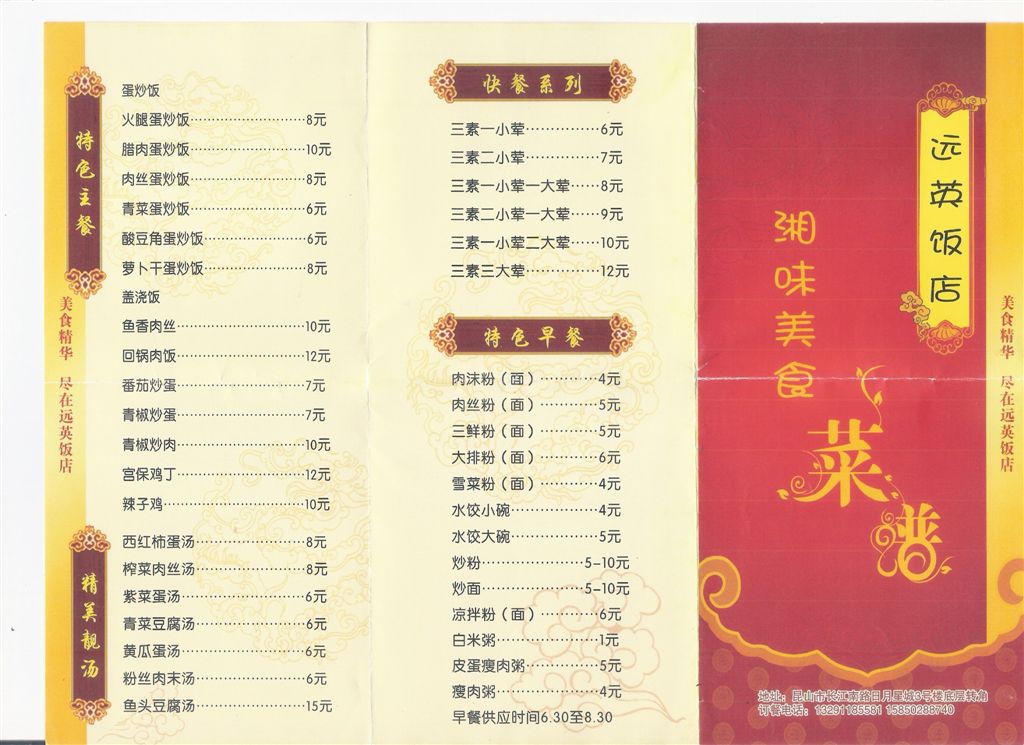 特色主餐
蛋炒饭
火腿蛋炒饭…………8元
腊肉蛋炒饭…………10元
肉丝蛋炒饭…………8元
青菜蛋炒饭…………6元
酸豆角蛋炒饭…………6元
萝卜干蛋炒饭…………8元
盖浇饭
鱼香肉丝…………10元
回锅肉饭…………12元
番茄炒蛋…………7元
青椒炒蛋…………7元
青椒炒肉…………10元
宫保鸡丁…………12元
辣子鸡…………10元
美食精华 尽在远英饭店
精美靓汤
西红柿蛋汤…………8元
榨菜肉丝汤…………8元
紫菜蛋汤…………6元
青菜豆腐汤…………6元
黄瓜蛋汤…………6元
粉丝肉末汤…………6元
鱼头豆腐汤…………15元
快餐系列
三素一小荤…………6元
三素二小荤…………7元
三素一小荤一大荤……8元
三素二小荤一大荤……9元
三素一小荤二大荤……10元
三素三大荤…………12元
特色早餐
肉沫粉（面）…………4元
肉丝粉（面）…………5元
三鲜粉（面）…………5元
大排粉（面）…………6元
雪菜粉（面）…………4元
水饺小碗…………4元
水饺大碗…………5元
炒粉…………5-10元
炒面…………5-10元
凉拌粉（面）…………6元
白米粥…………1元
皮蛋瘦肉粥…………5元
瘦肉粥…………4元
早餐供应时间6.30至8.30
远英饭店
湘味美食
菜谱
美食精华 尽在远英饭店
地址：昆山市长江南路日月星城3号楼底层转角
订餐电话：13291185581 15850288740